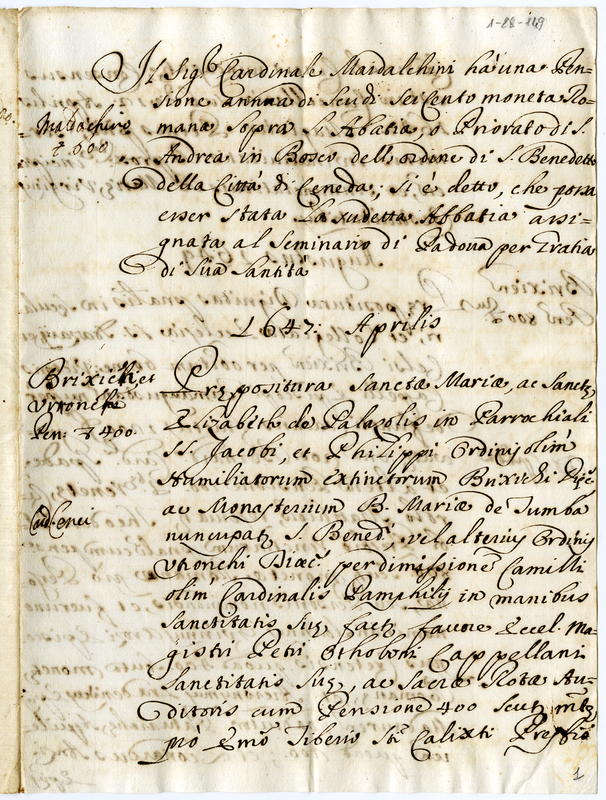 1-88-149
Il Sig.r Cardinale Maidalchini há una Pen-
sione annua di Scudi Seicento moneta Ro-
mana sopra S. Abatia, o Priorato di S.
Andrea in Bosco dell'ordine di S. Benedetto
della Cittá di Ceneda; si é detto, che possa
esser stata la sudetta Abbatia assi-
gnata al Seminario di Padoua per Gratia
di Sua Santitá
1647: Aprilis
Brixieñ, et
Pen: 400.
Prępositura Sanctæ Mariæ, ac Sanctę
Elizabeth de Palazolis in Parrochiali
SS. Jacobi, et Philippi Ordinis olim
Humiliatorum extinctorum
ac Monasterium B. Mariæ de Tumba
nuncupatę S. Bened.i, vel alterius Ordinis
per dimissionẽ Camilli
olim Cardinalis Pamphilij in manibus
Sanctitatis Suę factę fauore Eccel. Ma-
gistri Petri Othoboni Cappellani
Sanctitatis Suę, ac Sacræ Rotæ Au-
ditoris cum Pensione 400 Scutę mtę
pró Emõ Tiberio Sti Calixti
1